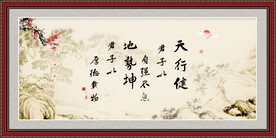 天行健
君子以
自强不息
地势坤
君子以
厚德載物